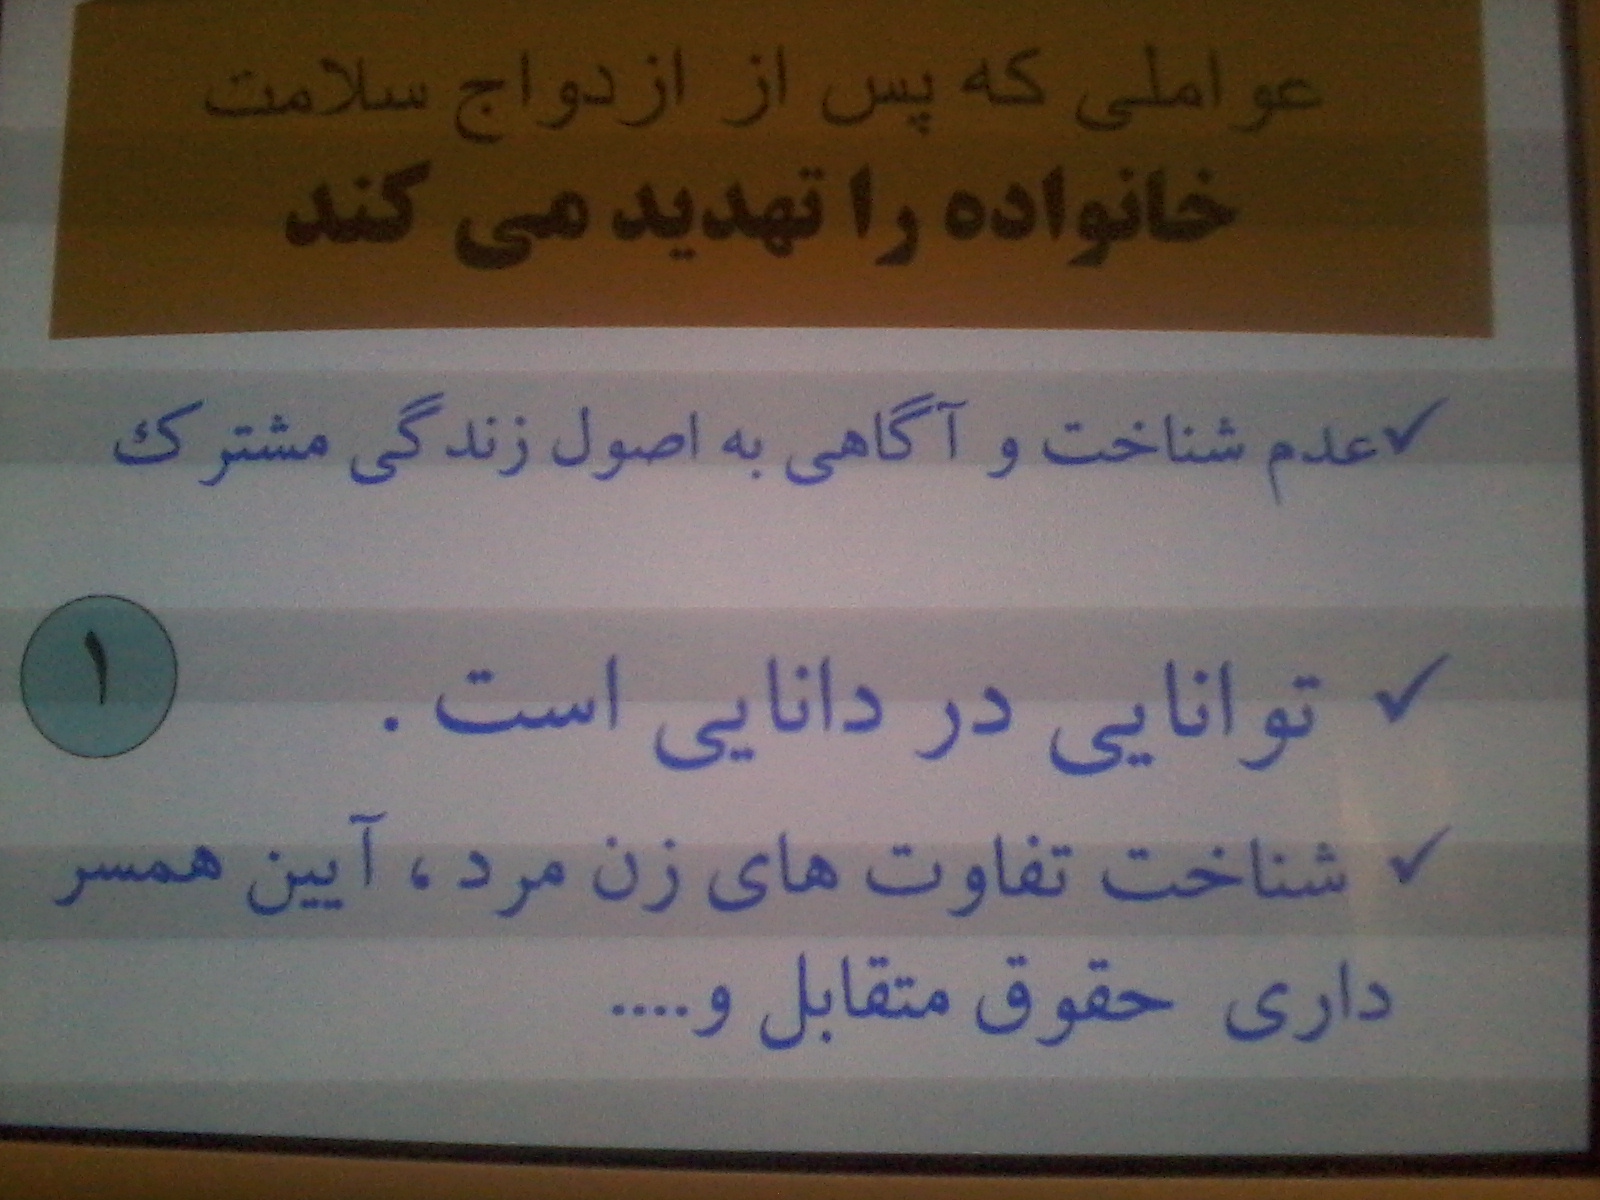 عواملی که پس از ازدواج سلامت
خانواده را تهدید می کند
✓عدم شناخت و آگاهی به اصول زندگی مشترک
۱
✓ توانایی در دانایی است .
✓ شناخت تفاوت های زن مرد ، آیین همسر
داری حقوق متقابل و....